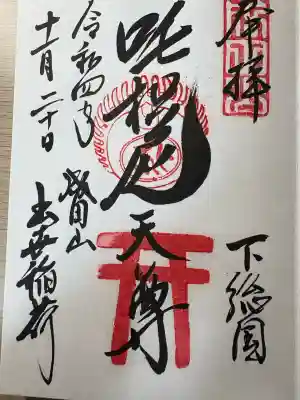 奉拝
下総國
吒枳尼天尊
令和四年
十一月二十日
當山
出世稲荷